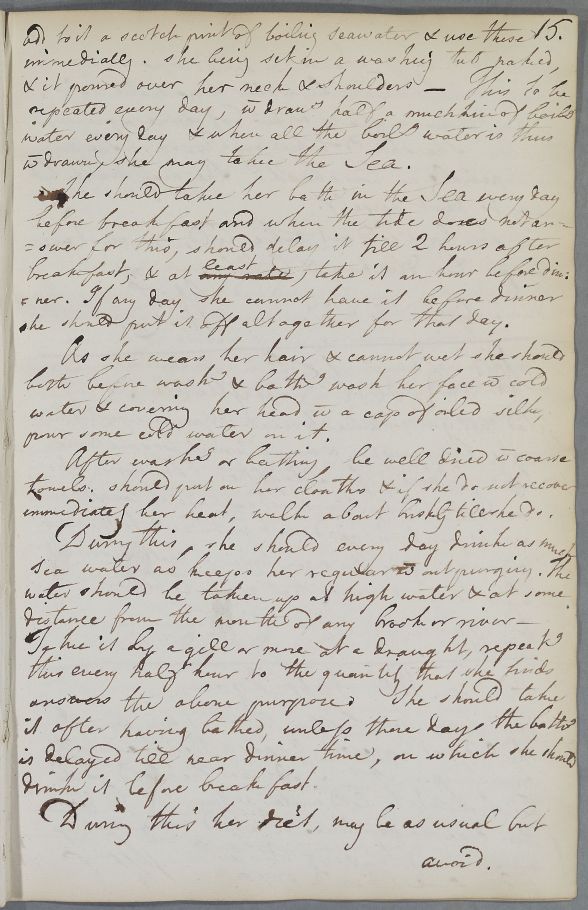 add to it a scotch pint of boiling seawater & use these 15.
immediately. she being set in a washing tub naked,
& it poured over her neck & shoulders — This to be
repeated every day, wdraws half a mutchkin of boilg
water every day & when all the boilg water is thus
wdrawn, she may take the Sea.
She should take her bath in the Sea every day
before breakfast and when the tide does not an-
=swer for this, should delay it till 2 hours after
breakfast, & at any rate least, take it an hour before din:
=ner. If any day she cannot have it before dinner
she should put it off altogether for that day.
As she wears her hair & cannot wet she should
both before washg & bathg wash her face w cold
water & covering her head w a cap of oiled silk,
pour some cold water on it.
After washg or bathing be well dried w coarse
towels. should put on her cloaths & if she do not recover
immediately her heat, walk about briskly till she do.
During this, she should every day drink as much
sea water as keeps her regular wout purging. The
water should be taken up at high water & at some
distance from the mouth of any brook or river —
Take it by a gill or more at a draught, repeatg
this every half hour to the quantity that she finds
answers the above purpose. She should take
it after having bathed, unless those days the bathg
is delayed till near dinner time, on which she should
drink it before breakfast.
During this her diet, may be as usual but
avoid.